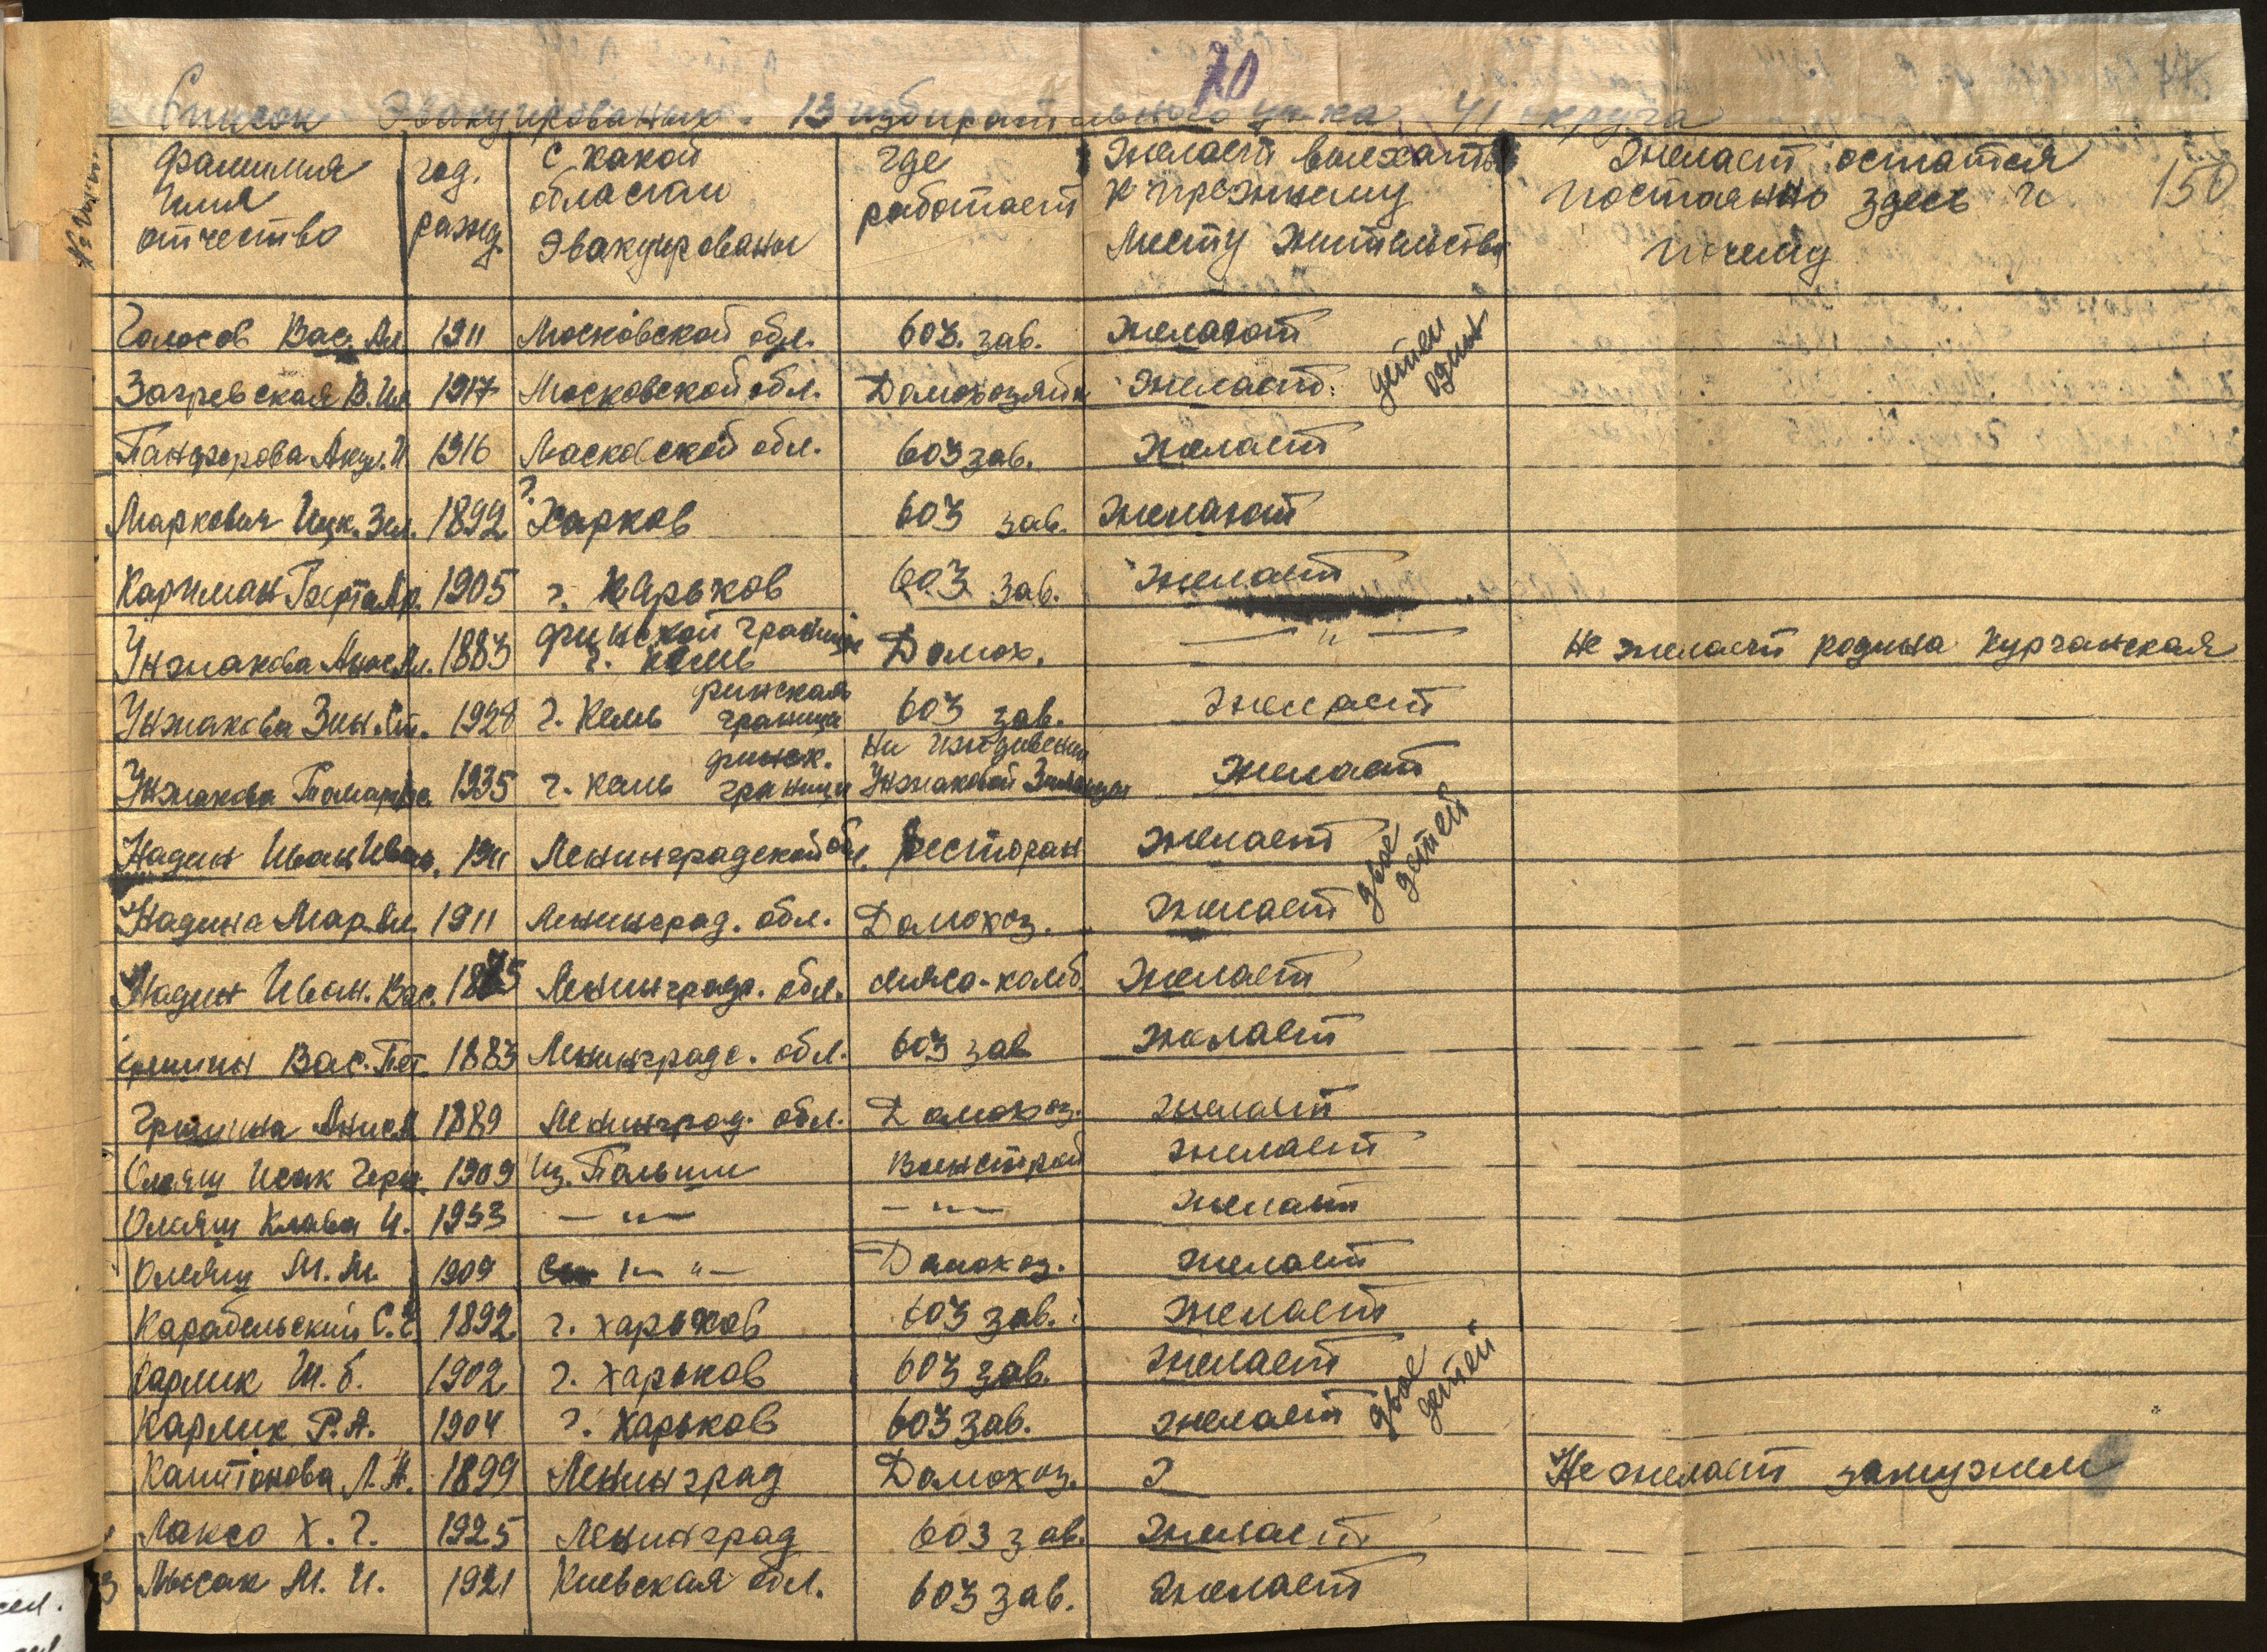 70
Список Эвакуированых 13 избирательного уч-ка 41 округа
150
фамилия Имя отчество | год. рожд. | С какой области Эвакуированы | где работает | Желает выехать к прежнему Месту Жительства | Желает остатся постоянно здесь и почему
Голосов Вас. Ал | 1911 | Московской обл. | 603. зав. | Желают
Загревская В. Ил | 1917 | Московской обл. | Домохозяйк | Желает. детей один
Панферова Акул. И. | 1916 | Масковской обл. | 603 зав. | Желает
Маркович Ицк. Зел. | 1892 | г. Харков | 603 зав. | Желают
Карчман Берта Ар. | 1905 | г. Харьков | 603 зав. | Желает
Унжакова Анас. Ал. | 1883 | финской границе г. Кемь | Домох. | — " — | Не желает родина Курганская
Унжакова Зин. Ст. | 1928 | г. Кемь финская граница | 603 зав. | желает
Унжакова Тамара | 1935 | г. Кемь финск. граници | На иждивении Унжаковой Зинаиды | Желает
Надин Иван Иван. | 1911 | Ленинградской обл. | Ресторан | Желает двое детей
Надина Мар. Ал | 1911 | Ленинград. обл. | Домохоз. | Желает
Надин Иван. Вас. | 1875 | Ленинградс. обл. | мяса-комб. | Желает
Вас. Пет. | 1883 | Ленинградс. обл. | 603 зав | желает
Гришина Анис. | 1889 | Ленинград. обл. | Домохоз. | желает
Олеящ Исак Герш. | 1909 | Из. Польши | Военстрой | желает
Олеящ Клава И. | 1933 | — " — | — " — | желает
Олеящ М. М. | 1909 | — " — | Домохоз. | желает
Карабельский С. Г. | 1892 | г. харьков | 603 зав. | Желает
Карлик Ш. б. | 1902 | г. харьков | 603 зав. | Желает
Карлик Р. А. | 1904 | г. Харьков | 603 зав. | желает двое детей
Капитонова Л. Н. | 1899 | Ленинград | Домохоз. | ? | Не желает замужем
Лаксо Х. Г. | 1925 | Ленинград | 603 зав. | Желает
3 Лысак М. И. | 1921 | Киевская обл. | 603 зав. | Желает